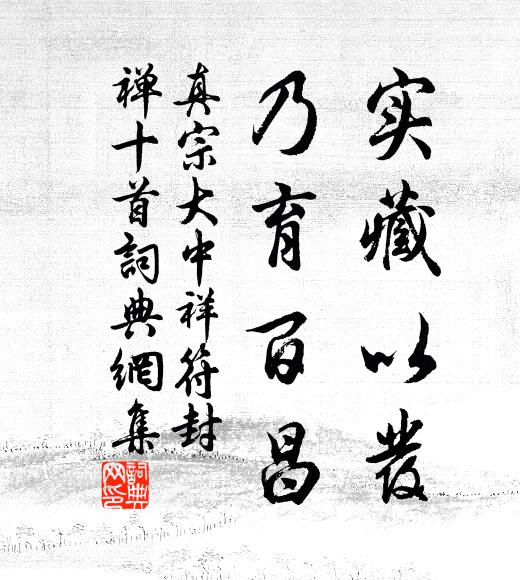 实藏以发
乃育百昌
真宗大中祥符封
禅十首詞典網集
詞典网印